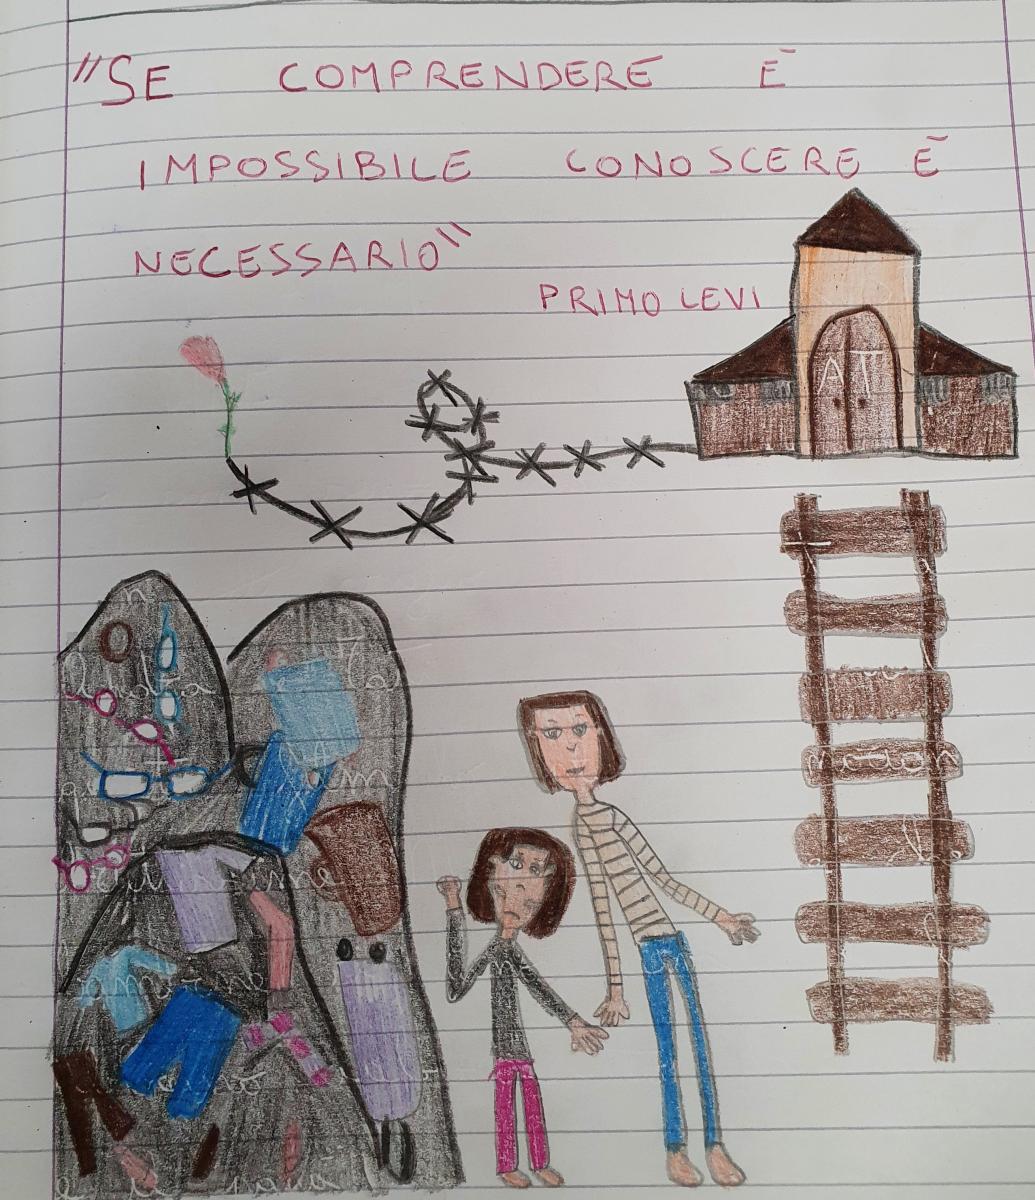 "SE COMPRENDERE È
IMPOSSIBILE CONOSCERE È
NECESSARIO"
PRIMO LEVI